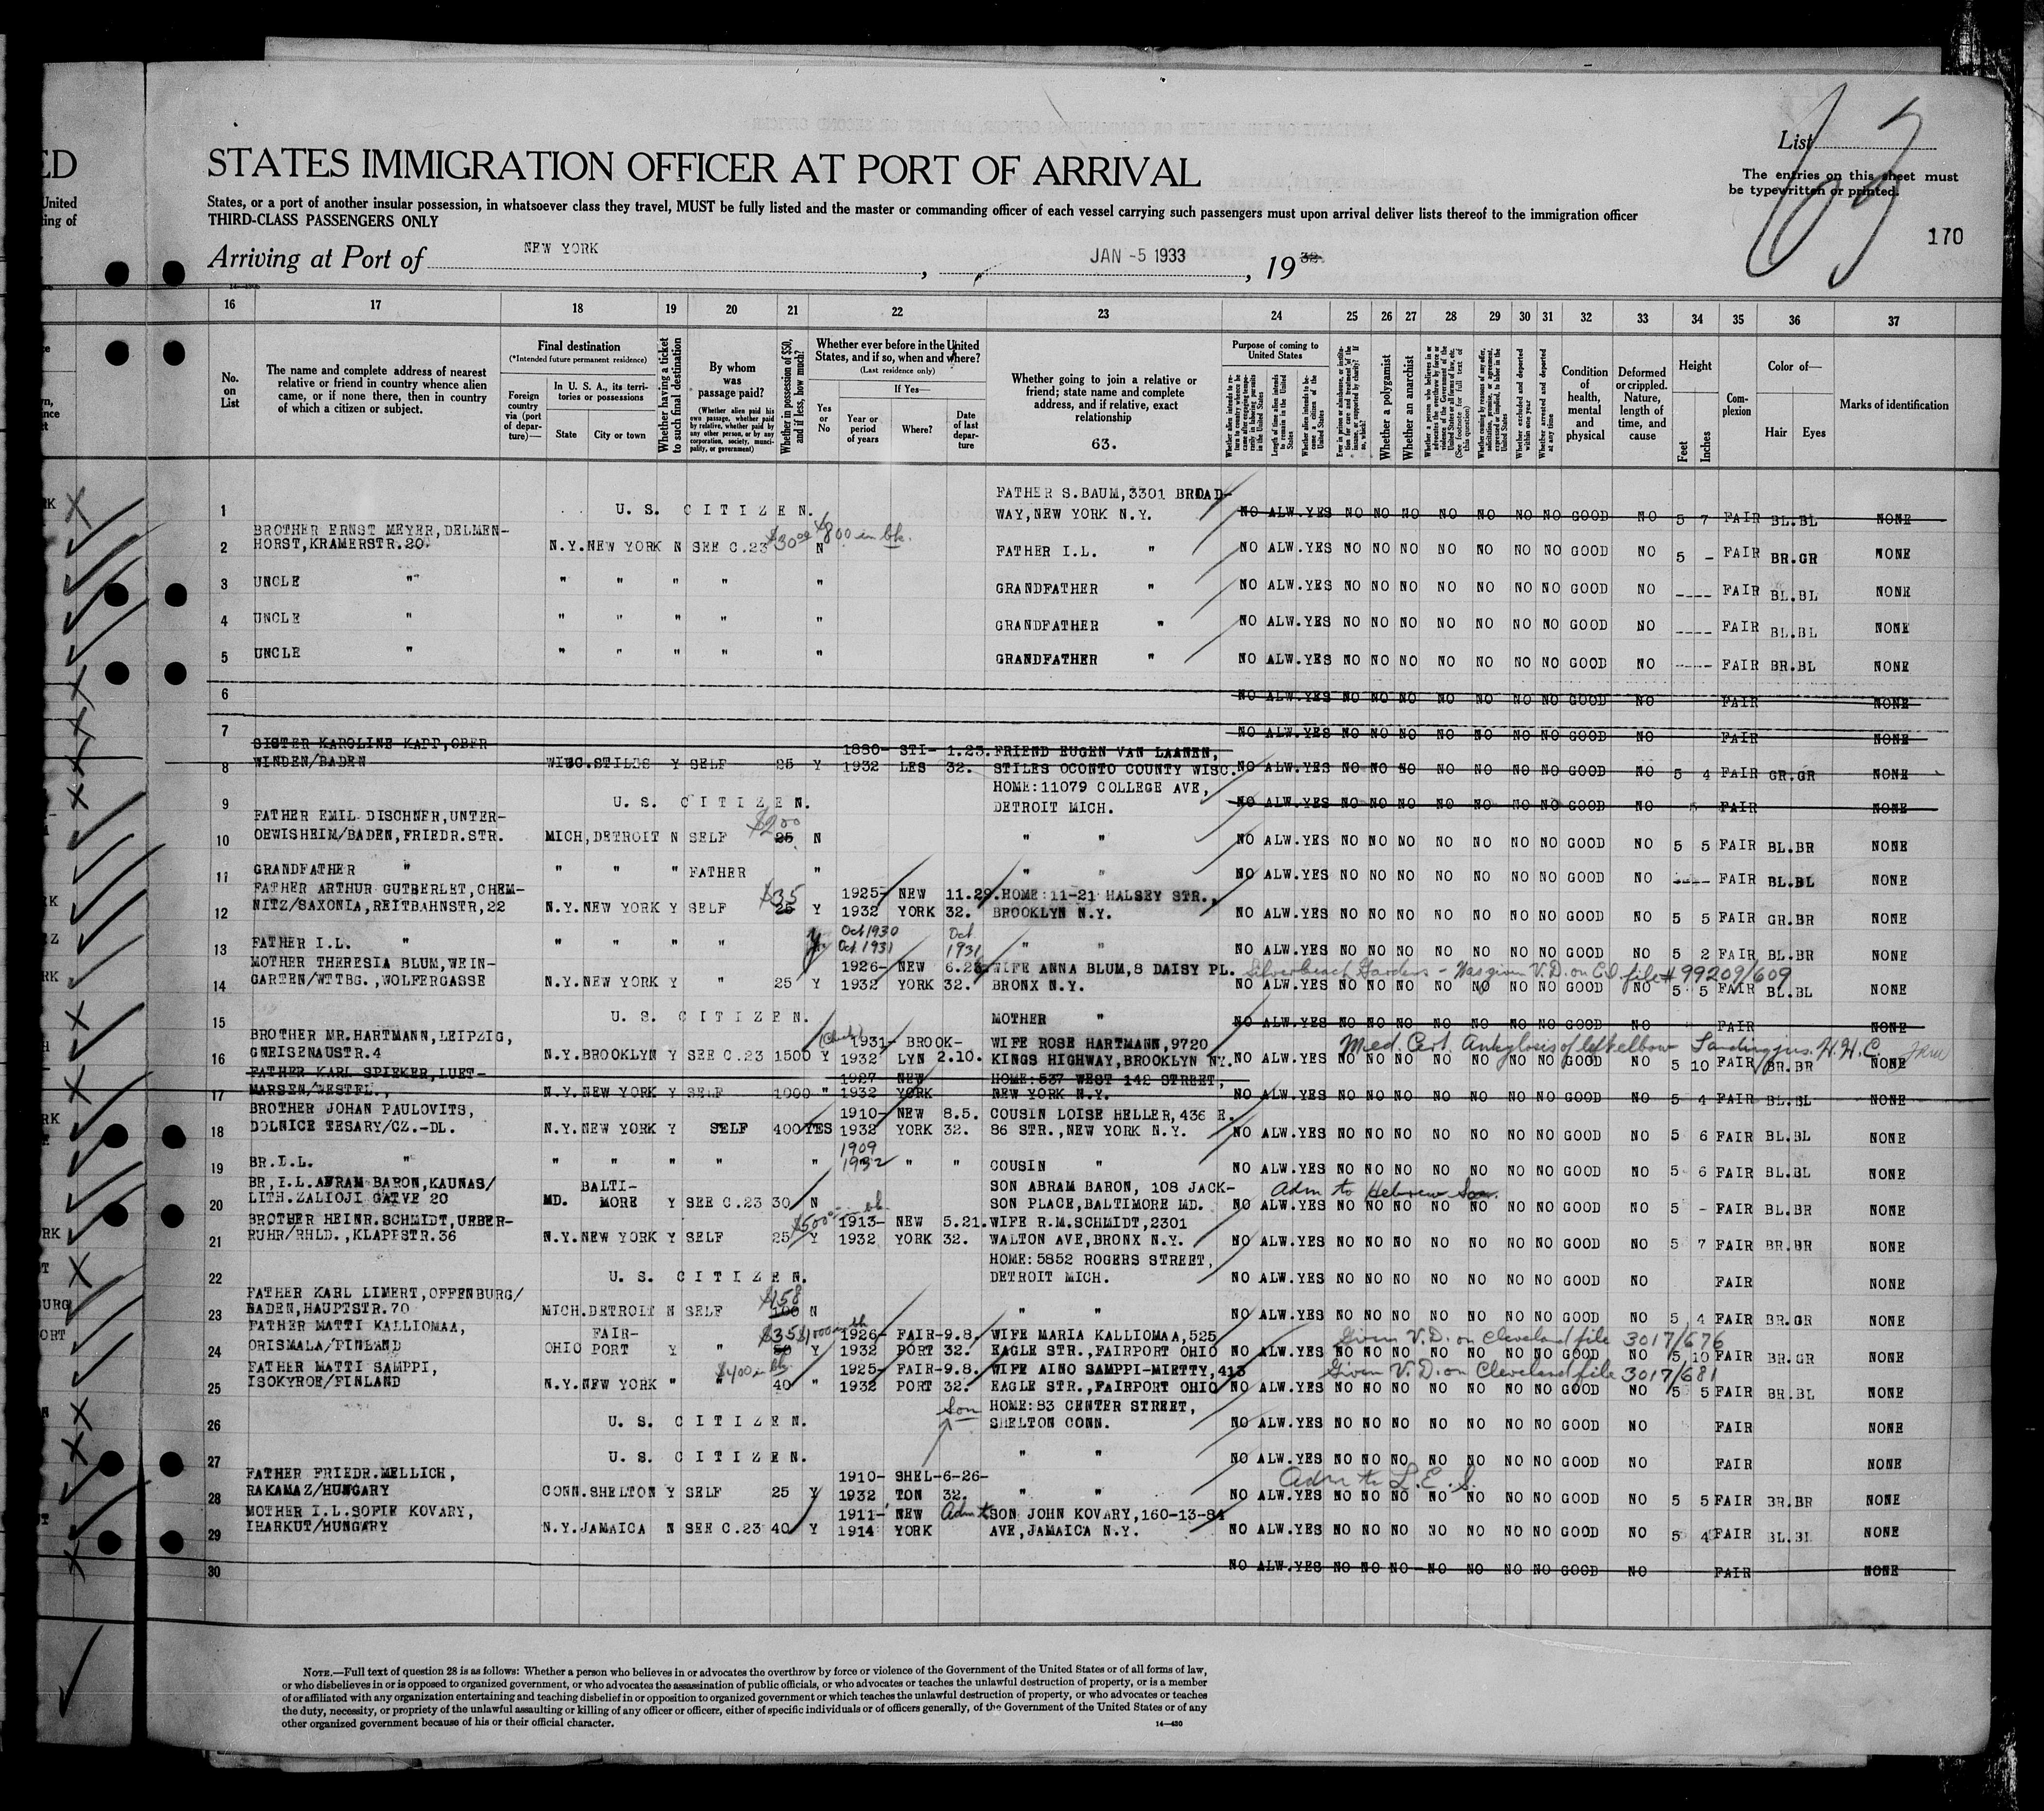 ED
STATES IMMIGRATION OFFICER AT PORT OF ARRIVAL
List
The entries on this sheet must
be typewritten or printed.
United
ing of
States, or a port of another insular possession, in whatsoever class they travel, MUST be fully listed and the master or commanding officer of each vessel carrying such passengers must upon arrival deliver lists thereof to the immigration officer
THIRD-CLASS PASSENGERS ONLY
170
Arriving at Port of NEW YORK, JAN -5 1933, 19 32
16 17 18 19 20 21 22 23 24 25 26 27 28 29 30 31 32 33 34 35 36 37
No. on List
The name and complete address of nearest
relative or friend in country whence alien
came, or if none there, then in country
of which a citizen or subject.
Final destination
(*Intended future permanent residence)
Foreign country via (port of departure)—
In U. S. A., its territories or possessions
State
City or town
Whether having a ticket to such final destination
By whom was passage paid?
(Whether alien paid his own passage, whether paid by relative, whether paid by any other person, or by any corporation, society, municipality, or government)
Whether in possession of $50, and if less, how much?
Whether ever before in the United States, and if so, when and where?
(Last residence only)
Yes or No
If Yes—
Year or period of years
Where?
Date of last departure
Whether going to join a relative or
friend; state name and complete
address, and if relative, exact
relationship
63.
Purpose of coming to United States
Whether a polygamist
Whether an anarchist
Condition of health, mental and physical
Deformed or crippled. Nature, length of time, and cause
Height
Feet
Inches
Complexion
Color of—
Hair
Eyes
Marks of identification
FATHER S.BAUM,3301 BROAD-
1 U. S. CITIZEN. WAY,NEW YORK N.Y. NO ALW.YES NO NO NO NO NO NO NO GOOD NO 5 7 FAIR BL.BL NONE
BROTHER ERNST MEYER,DELMEN- $30.00 $800 in bk.
2 HORST,KRAMERSTR.20. N.Y.NEW YORK N SEE C.23 N FATHER I.L. " NO ALW.YES NO NO NO NO NO NO NO GOOD NO 5 - FAIR BR.GR NONE
3 UNCLE " " " " " " GRANDFATHER " NO ALW.YES NO NO NO NO NO NO NO GOOD NO ---- FAIR BL.BL NONE
4 UNCLE " " " " " " GRANDFATHER " NO ALW.YES NO NO NO NO NO NO NO GOOD NO ---- FAIR BL.BL NONE
5 UNCLE " " " " " " GRANDFATHER " NO ALW.YES NO NO NO NO NO NO NO GOOD NO ---- FAIR BR.BL NONE
6 NO ALW.YES NO NO NO NO NO NO NO GOOD NO FAIR NONE
7 NO ALW.YES NO NO NO NO NO NO NO GOOD NO FAIR NONE
SISTER KAROLINE KAPP,OBER 1880- STI- 1.23. FRIEND EUGEN VAN LAANEN,
8 WINDEN/BADEN WISC.STILES Y SELF 25 Y 1932 LES 32. STILES OCONTO COUNTY WISC. NO ALW.YES NO NO NO NO NO NO NO GOOD NO 5 4 FAIR GR.GR NONE
HOME:11079 COLLEGE AVE,
9 U. S. CITIZEN. DETROIT MICH. NO ALW.YES NO NO NO NO NO NO NO GOOD NO 5 FAIR NONE
FATHER EMIL DISCHNER,UNTER- $200
10 OEWISHEIM/BADEN,FRIEDR.STR. MICH,DETROIT N SELF 25 N " " NO ALW.YES NO NO NO NO NO NO NO GOOD NO 5 5 FAIR BL.BR NONE
11 GRANDFATHER " " " " FATHER " " " NO ALW.YES NO NO NO NO NO NO NO GOOD NO ---- FAIR BL.BL NONE
FATHER ARTHUR GUTBERLET,CHEM- $35 1925- NEW 11.29. HOME:11-21 HALSEY STR.,
12 NITZ/SAXONIA,REITBAHNSTR,22 N.Y.NEW YORK Y SELF 25 Y 1932 YORK 32. BROOKLYN N.Y. NO ALW.YES NO NO NO NO NO NO NO GOOD NO 5 5 FAIR GR.BR NONE
Oct 1930 Oct
13 FATHER I.L. " " " " " y Oct 1931 1931 " " NO ALW.YES NO NO NO NO NO NO NO GOOD NO 5 2 FAIR BL.BR NONE
MOTHER THERESIA BLUM,WEIN- 1926- NEW 6.28. WIFE ANNA BLUM,8 DAISY PL. Silverbeach Gardens - Was given V.D. on E.I. file # 99209/609
14 GARTEN/WTTBG.,WOLFERGASSE N.Y.NEW YORK Y " 25 Y 1932 YORK 32. BRONX N.Y. NO ALW.YES NO NO NO NO NO NO NO GOOD NO 5 5 FAIR BL.BL NONE
15 U. S. CITIZEN. MOTHER " NO ALW.YES NO NO NO NO NO NO NO GOOD NO FAIR NONE
BROTHER MR.HARTMANN,LEIPZIG, 1931- BROOK- WIFE ROSE HARTMANN,9720 Med. Cert. Ankylosis of left elbow Landing jus. H.H.C.
16 GNEISENAUSTR.4 N.Y.BROOKLYN Y SEE C.23 1500 Y 1932 LYN 2.10. KINGS HIGHWAY,BROOKLYN NY. NO ALW.YES NO NO NO NO NO NO NO GOOD NO 5 10 FAIR BR.BR NONE
FATHER KARL SPIEKER,LUET- 1927- NEW HOME:537 WEST 142 STREET,
17 MARSEN/WESTFL., N.Y.NEW YORK Y SELF 1000 " 1932 YORK NEW YORK N.Y. NO ALW.YES NO NO NO NO NO NO NO GOOD NO 5 4 FAIR BL.BL NONE
BROTHER JOHAN PAULOVITS, 1910- NEW 8.5. COUSIN LOISE HELLER,436 E.
18 DOLNICE TESARY/CZ.-DL. N.Y.NEW YORK Y SELF 400 YES 1932 YORK 32. 86 STR.,NEW YORK N.Y. NO ALW.YES NO NO NO NO NO NO NO GOOD NO 5 6 FAIR BL.BL NONE
1909
19 BR.I.L. " " " " " " 1932 " " COUSIN " NO ALW.YES NO NO NO NO NO NO NO GOOD NO 5 6 FAIR BL.BL NONE
BR,I.L.AVRAM BARON,KAUNAS/ BALTI- SON ABRAM BARON, 108 JACK- Adm to Hebrew Soc.
20 LITH.ZALIOJI GATVE 20 MD. MORE Y SEE C.23 30 N SON PLACE,BALTIMORE MD. NO ALW.YES NO NO NO NO NO NO NO GOOD NO 5 - FAIR BL.BR NONE
BROTHER HEINR.SCHMIDT,UEBER- $500 in bk 1913- NEW 5.21. WIFE R.M.SCHMIDT,2301
21 RUHR/RHLD.,KLAPPSTR.36 N.Y.NEW YORK Y SELF 25 Y 1932 YORK 32. WALTON AVE,BRONX N.Y. NO ALW.YES NO NO NO NO NO NO NO GOOD NO 5 7 FAIR BR.BR NONE
HOME:5852 ROGERS STREET,
22 U. S. CITIZEN. DETROIT MICH. NO ALW.YES NO NO NO NO NO NO NO GOOD NO FAIR NONE
FATHER KARL LIMERT,OFFENBURG/ $158
23 BADEN,HAUPTSTR.70 MICH.DETROIT N SELF 100 N " " NO ALW.YES NO NO NO NO NO NO NO GOOD NO 5 4 FAIR BR.GR NONE
FATHER MATTI KALLIOMAA, FAIR- $35 $1000 in bk 1926- FAIR-9.8. WIFE MARIA KALLIOMAA,525 Given V.D. on Cleveland file 3017/676
24 ORISMALA/FINLAND OHIO PORT Y " 50 Y 1932 PORT 32. EAGLE STR.,FAIRPORT OHIO NO ALW.YES NO NO NO NO NO NO NO GOOD NO 5 10 FAIR BR.GR NONE
FATHER MATTI SAMPPI, $400 in bk. 1925- FAIR-9.8. WIFE AINO SAMPPI-MIETTY,413 Given V.D. on Cleveland file 3017/681
25 ISOKYROE/FINLAND N.Y.NEW YORK " " 40 " 1932 PORT 32. EAGLE STR.,FAIRPORT OHIO NO ALW.YES NO NO NO NO NO NO NO GOOD NO 5 5 FAIR BR.BL NONE
Son HOME:83 CENTER STREET,
26 U. S. CITIZEN. SHELTON CONN. NO ALW.YES NO NO NO NO NO NO NO GOOD NO FAIR NONE
27 U. S. CITIZEN. " " NO ALW.YES NO NO NO NO NO NO NO GOOD NO FAIR NONE
FATHER FRIEDR.MELLICH, 1910- SHEL-6-26- Adm to L.E.S.
28 RAKAMAZ/HUNGARY CONN.SHELTON Y SELF 25 Y 1932 TON 32. " " NO ALW.YES NO NO NO NO NO NO NO GOOD NO 5 5 FAIR BR.BR NONE
MOTHER I.L.SOFIE KOVARY, 1911- NEW Adm to SON JOHN KOVARY,160-13-84
29 IHARKUT/HUNGARY N.Y.JAMAICA N SEE C.23 40 Y 1914 YORK AVE,JAMAICA N.Y. NO ALW.YES NO NO NO NO NO NO NO GOOD NO 5 4 FAIR BL.BL NONE
30 NO ALW.YES NO NO NO NO NO NO NO GOOD NO FAIR NONE
NOTE.—Full text of question 28 is as follows: Whether a person who believes in or advocates the overthrow by force or violence of the Government of the United States or of all forms of law,
or who disbelieves in or is opposed to organized government, or who advocates the assassination of public officials, or who advocates or teaches the unlawful destruction of property, or is a member
of or affiliated with any organization entertaining and teaching disbelief in or opposition to organized government or which teaches the unlawful destruction of property, or who advocates or teaches
the duty, necessity, or propriety of the unlawful assaulting or killing of any officer or officers, either of specific individuals or of officers generally, of the Government of the United States or of any
other organized government because of his or their official character.
14—430